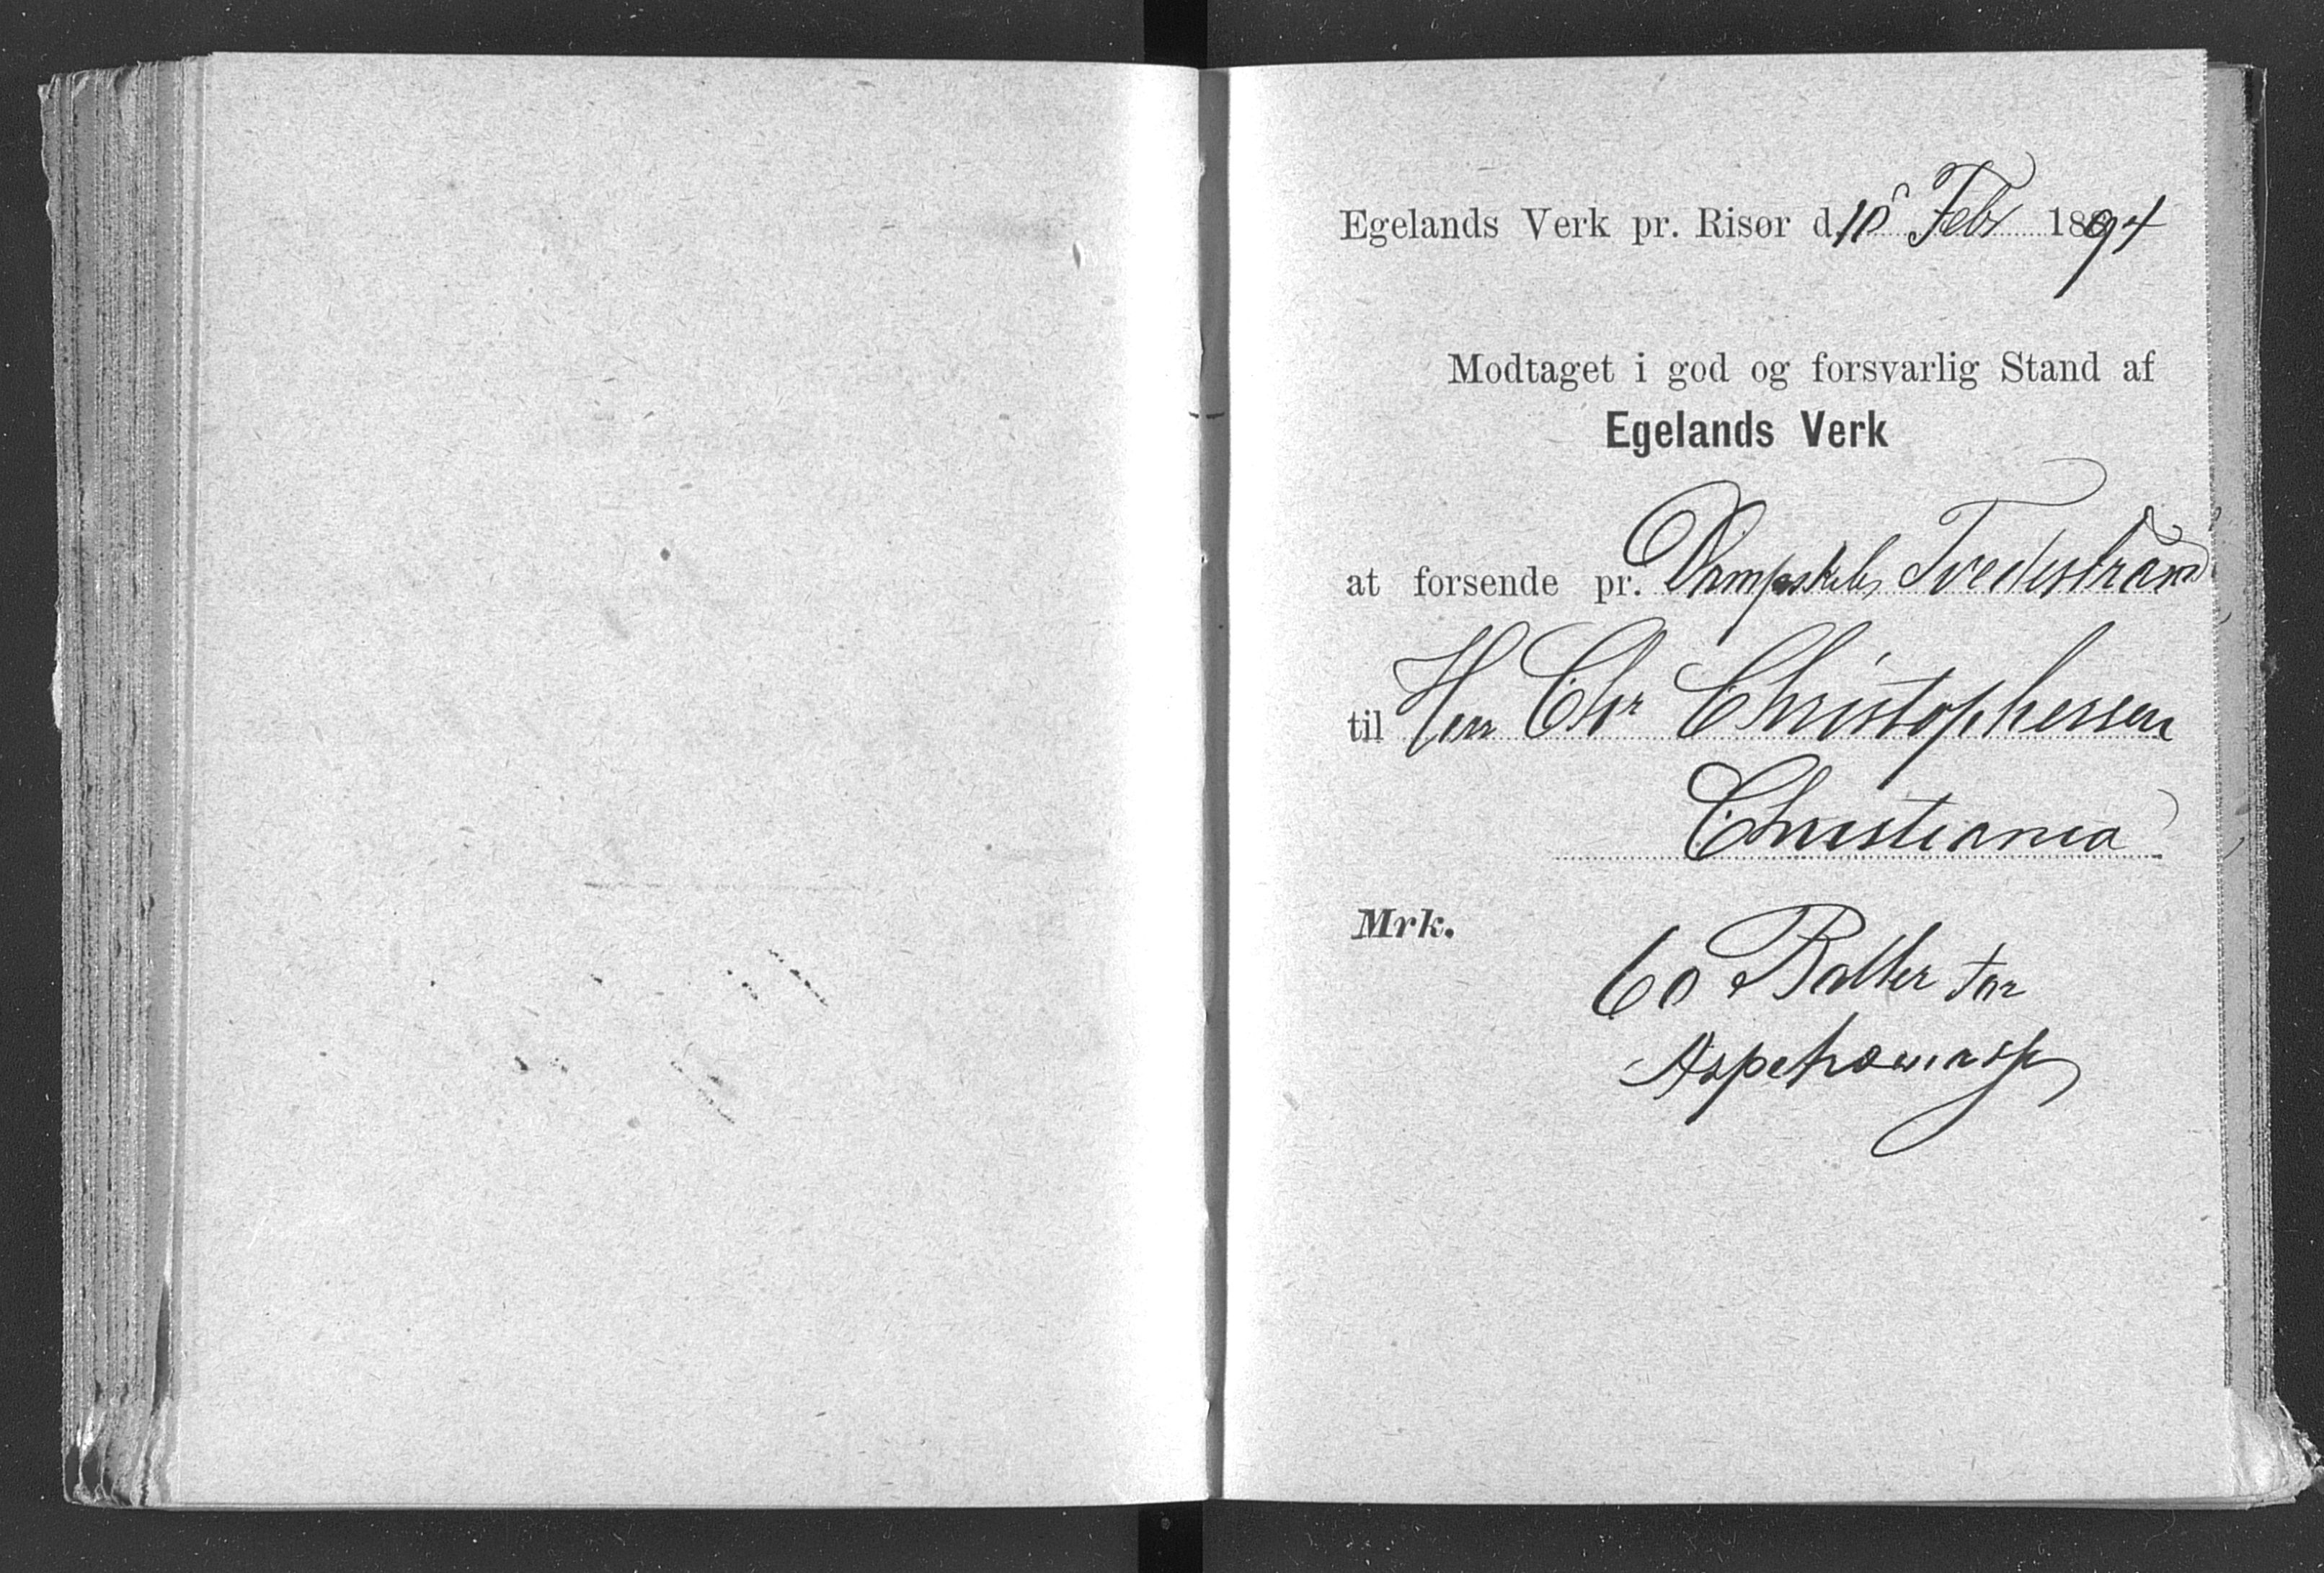 Egelands Verk pr. Risør d. 10 Febr 1894
Modtaget i god og forsvarlig Stand af
Egelands Verk
at forsende pr. Dampskibs Tvedestrand
til Herr Chr Christophersen
Christiania
Mrk.
60 Baller tør
Aspetræmasse